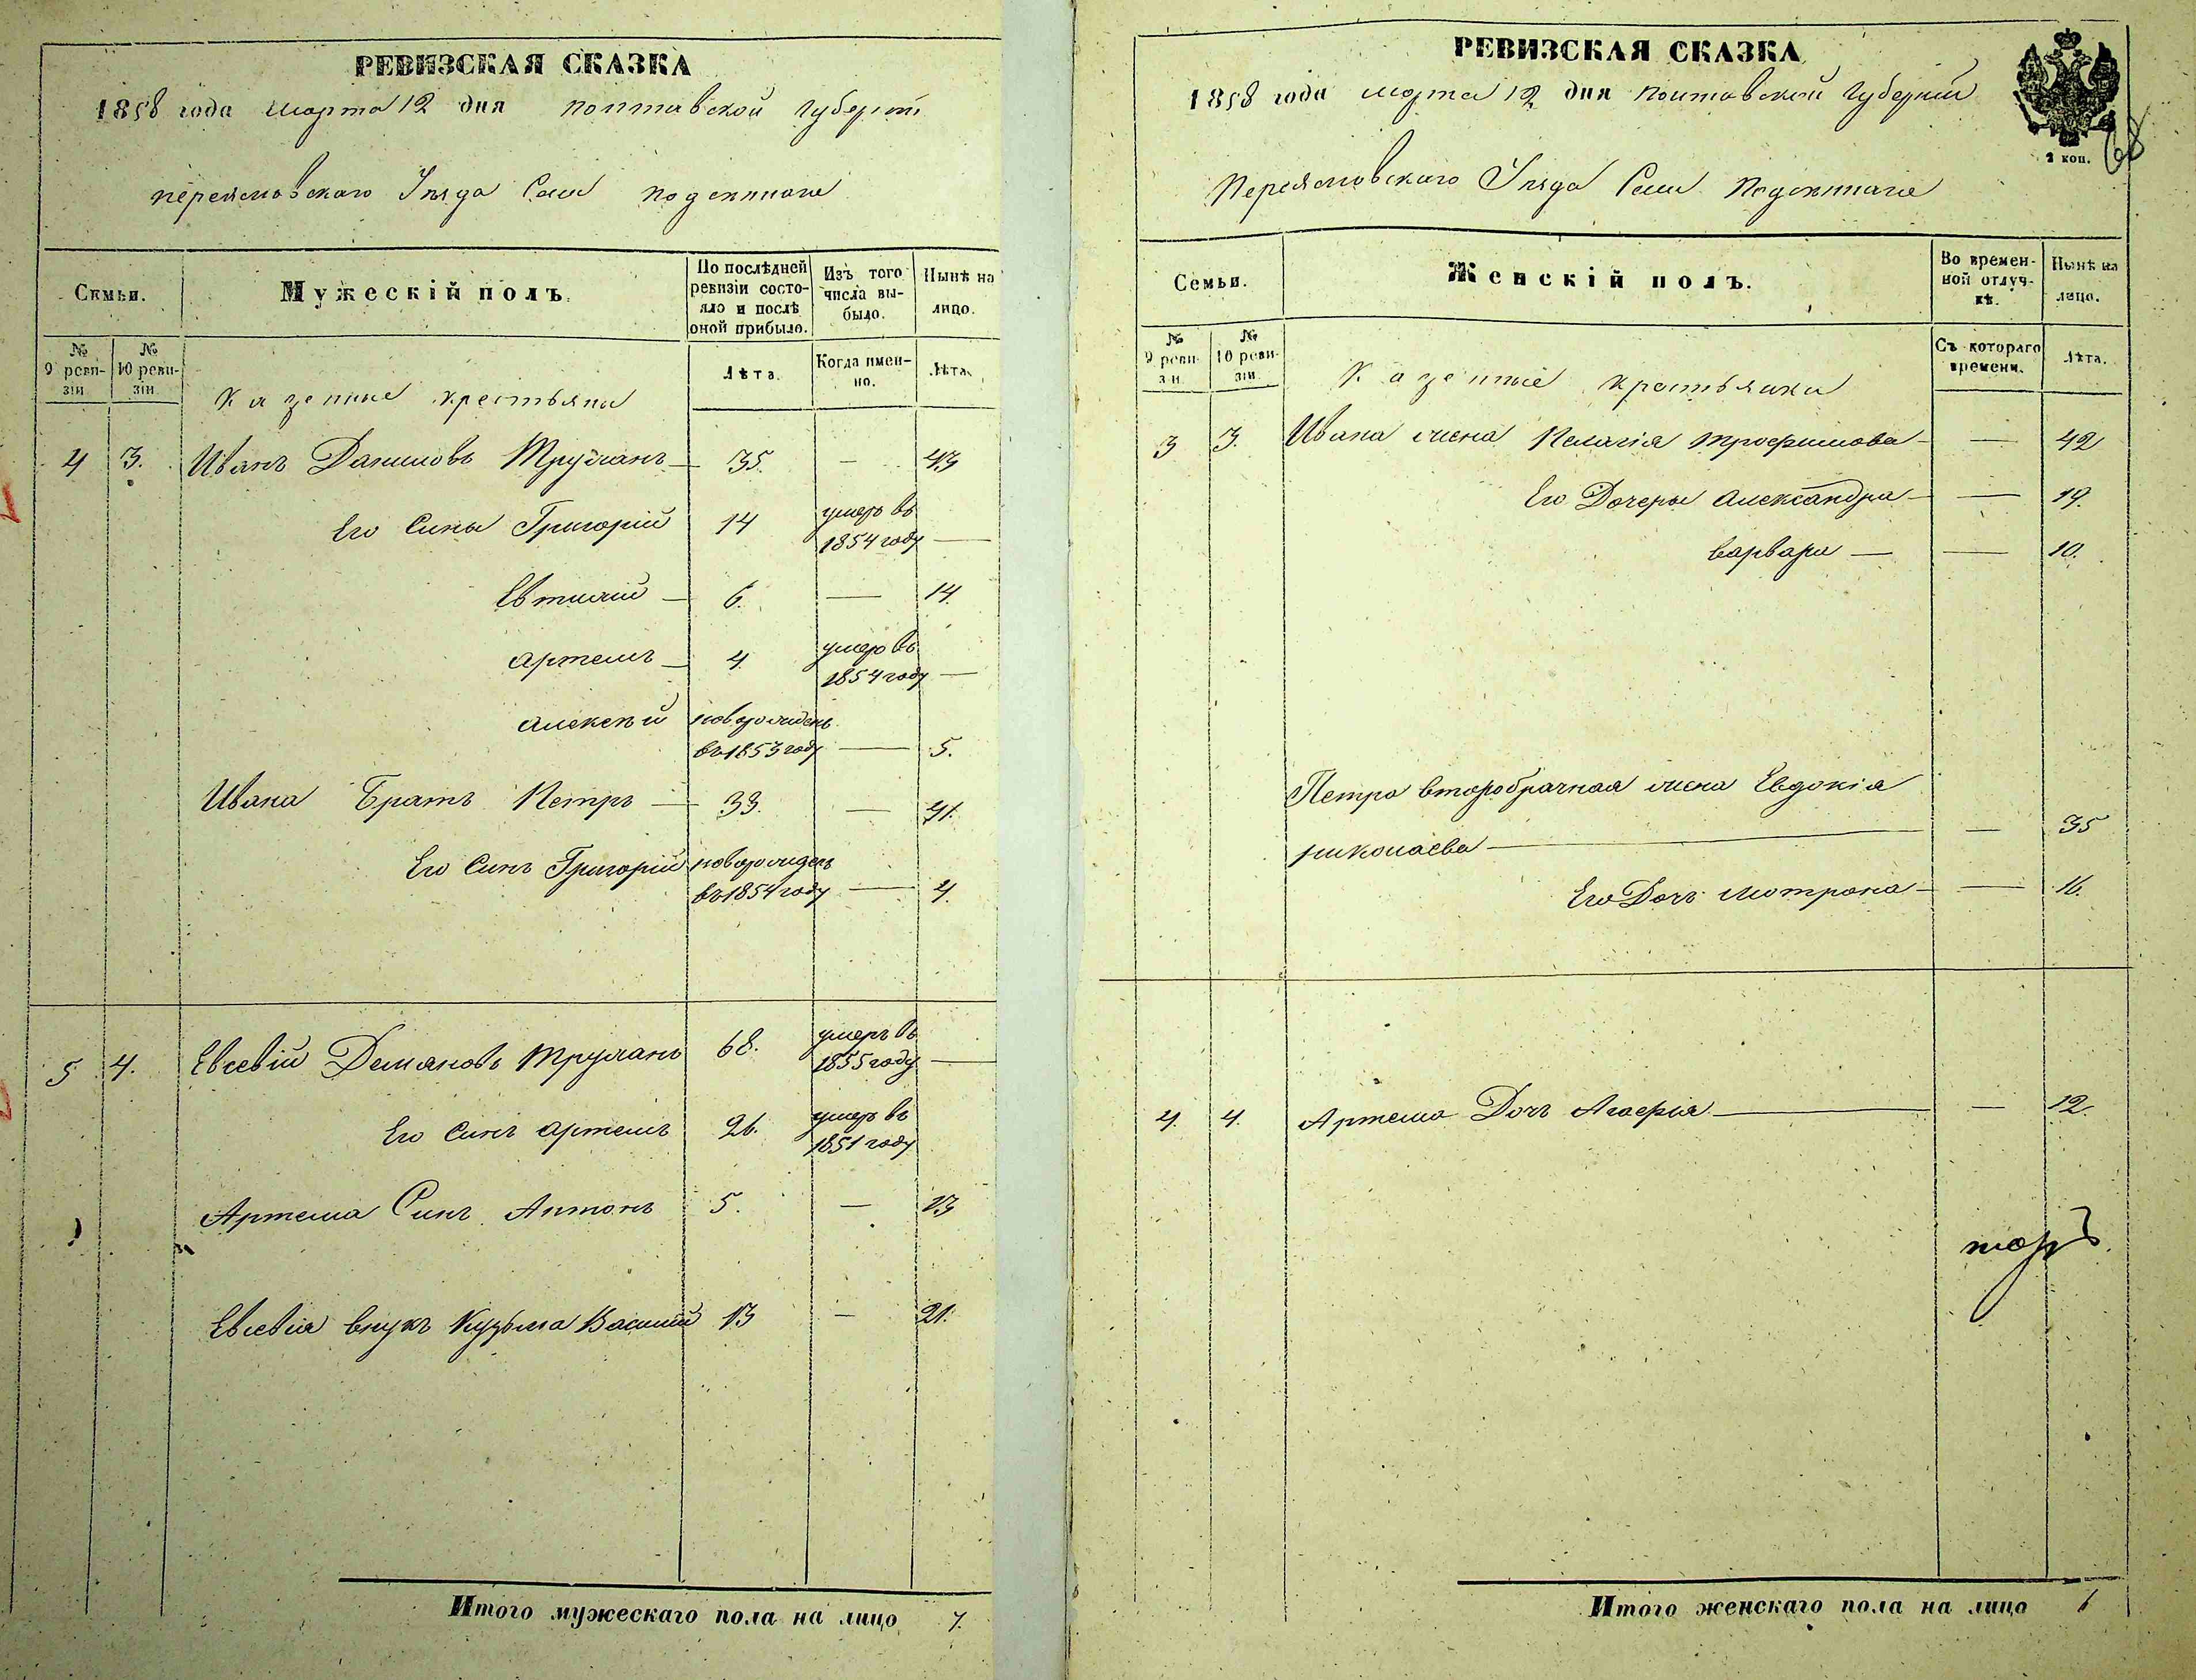 РЕВИЗСКАЯ СКАЗКА
1858 года марта 12 дня Полтавской Губерніи
Переясловскаго Уѣзда Села
Семьи.
Мужескій полъ.
По послѣдней ревизіи состояло и послѣ оной прибыло.
Изъ того числа выбыло.
Нынѣ на лицо.
№ 9 ревизіи
№ 10 ревизіи
Казенные крестьяни
Лѣта.
Когда именно.
Лѣта.
4 3. Иванъ Даниловъ — 35. — 43
Его Сины Григорій 14 умеръ въ 1854 году —
Евтихій — 6. — 14.
Артемъ — 4 умеръ въ 1854 году —
Алексѣй новорожденъ въ 1853 году — 5.
Ивана Братъ Петръ — 33. — 41.
Его Синъ Григорій новорожденъ въ 1854 году — 4.
5 4. Евсевій Демяновъ 68. умеръ въ 1855 году —
Его Синъ Артемъ 26. умеръ въ 1851 году
Артема Синъ Антонъ 5. — 13
Евсевія внукъ Кузьма 13 — 21.
Итого мужескаго пола на лицо 7.
РЕВИЗСКАЯ СКАЗКА
2 коп.
68
1858 года марта 12 дня Полтавской Губерніи
Переясловскаго Уѣзда Села
Семьи.
Женскій полъ.
Во временной отлучкѣ.
Нынѣ на лицо.
№ 9 ревизіи
№ 10 ревизіи
Казенніе крестьянки
Съ котораго времени.
Лѣта.
3 3. Ивана жена Пелагія Трофимова — — 42
Его Дочеры Александра — — 19.
Варвара — — 10.
Петра второбрачная жена Евдокія
Николаева — — 35
Его Дочь Мотрона — — 16.
4. 4. Артема Дочь — — 12.
Итого женскаго пола на лицо 6